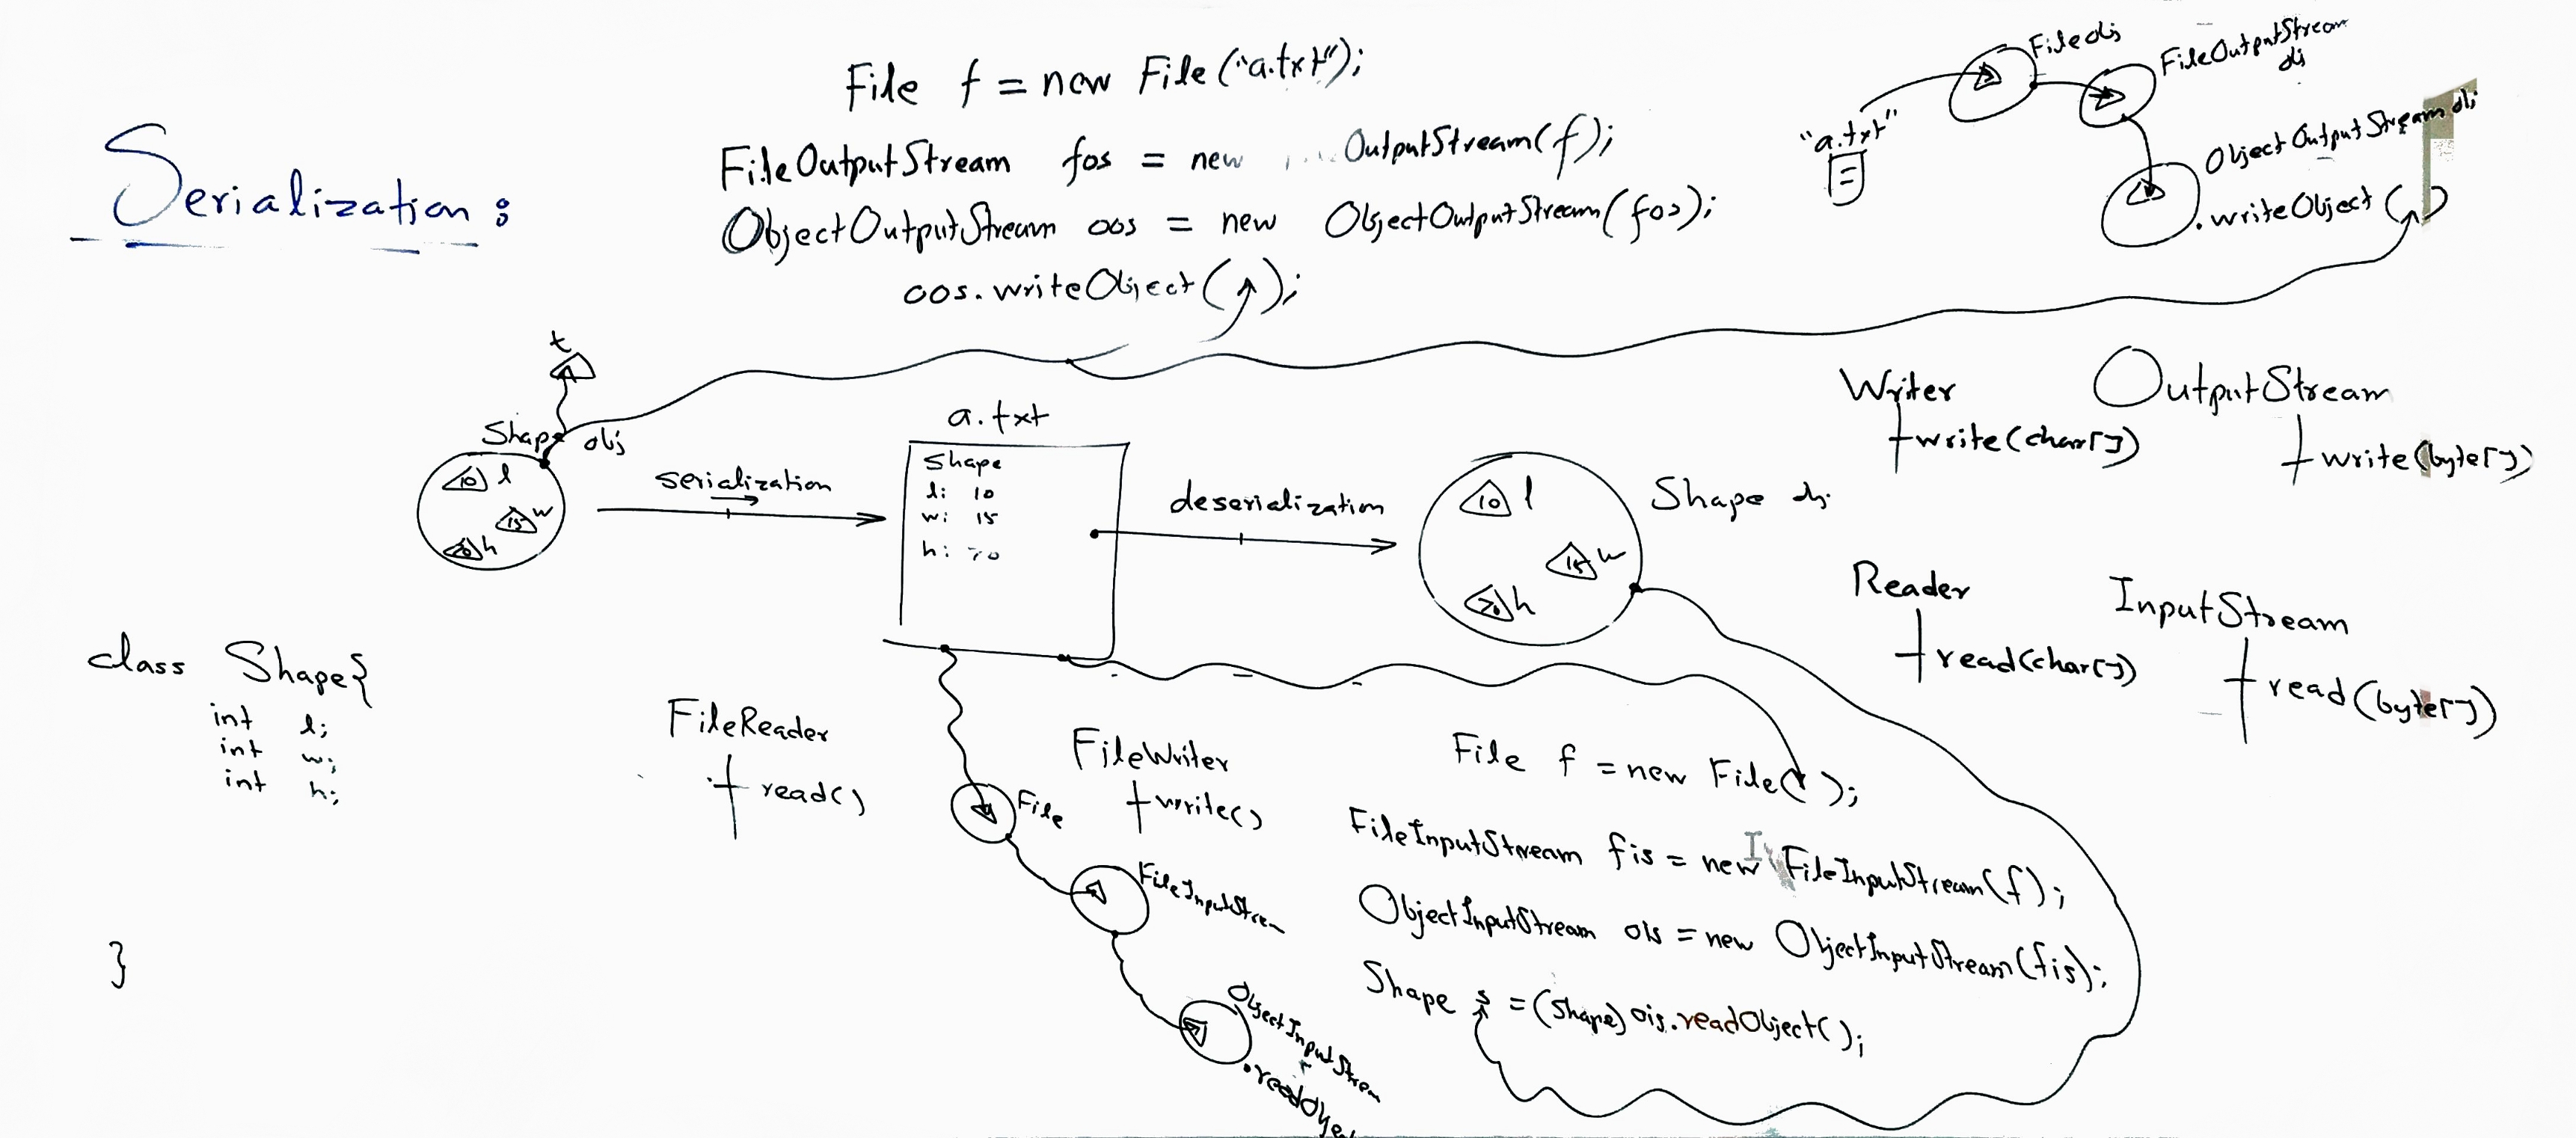 Serialization:
File f = new File("a.txt");
FileOutputStream fos = new OutputStream(f);
ObjectOutputStream oos = new ObjectOutputStream(fos);
oos.writeObject( );
"a.txt"
File obj
FileOutputStream
obj
ObjectOutputStream obj
.writeObject( )
t
Shape obj
10 l
15 w
h
serialization
a.txt
Shape
l: 10
w: 15
h: 70
deserialization
10 l
15 w
70 h
Shape obj
Writer
write(char[])
OutputStream
write(byte[])
Reader
read(char[])
InputStream
read(byte[])
class Shape{
int l;
int w;
int h;
}
FileReader
read()
FileWriter
write()
File
FileInputStream
ObjectInputStream
File f = new File( );
FileInputStream fis = new FileInputStream(f);
ObjectInputStream ois = new ObjectInputStream(fis);
Shape s = (Shape) ois.readObject();